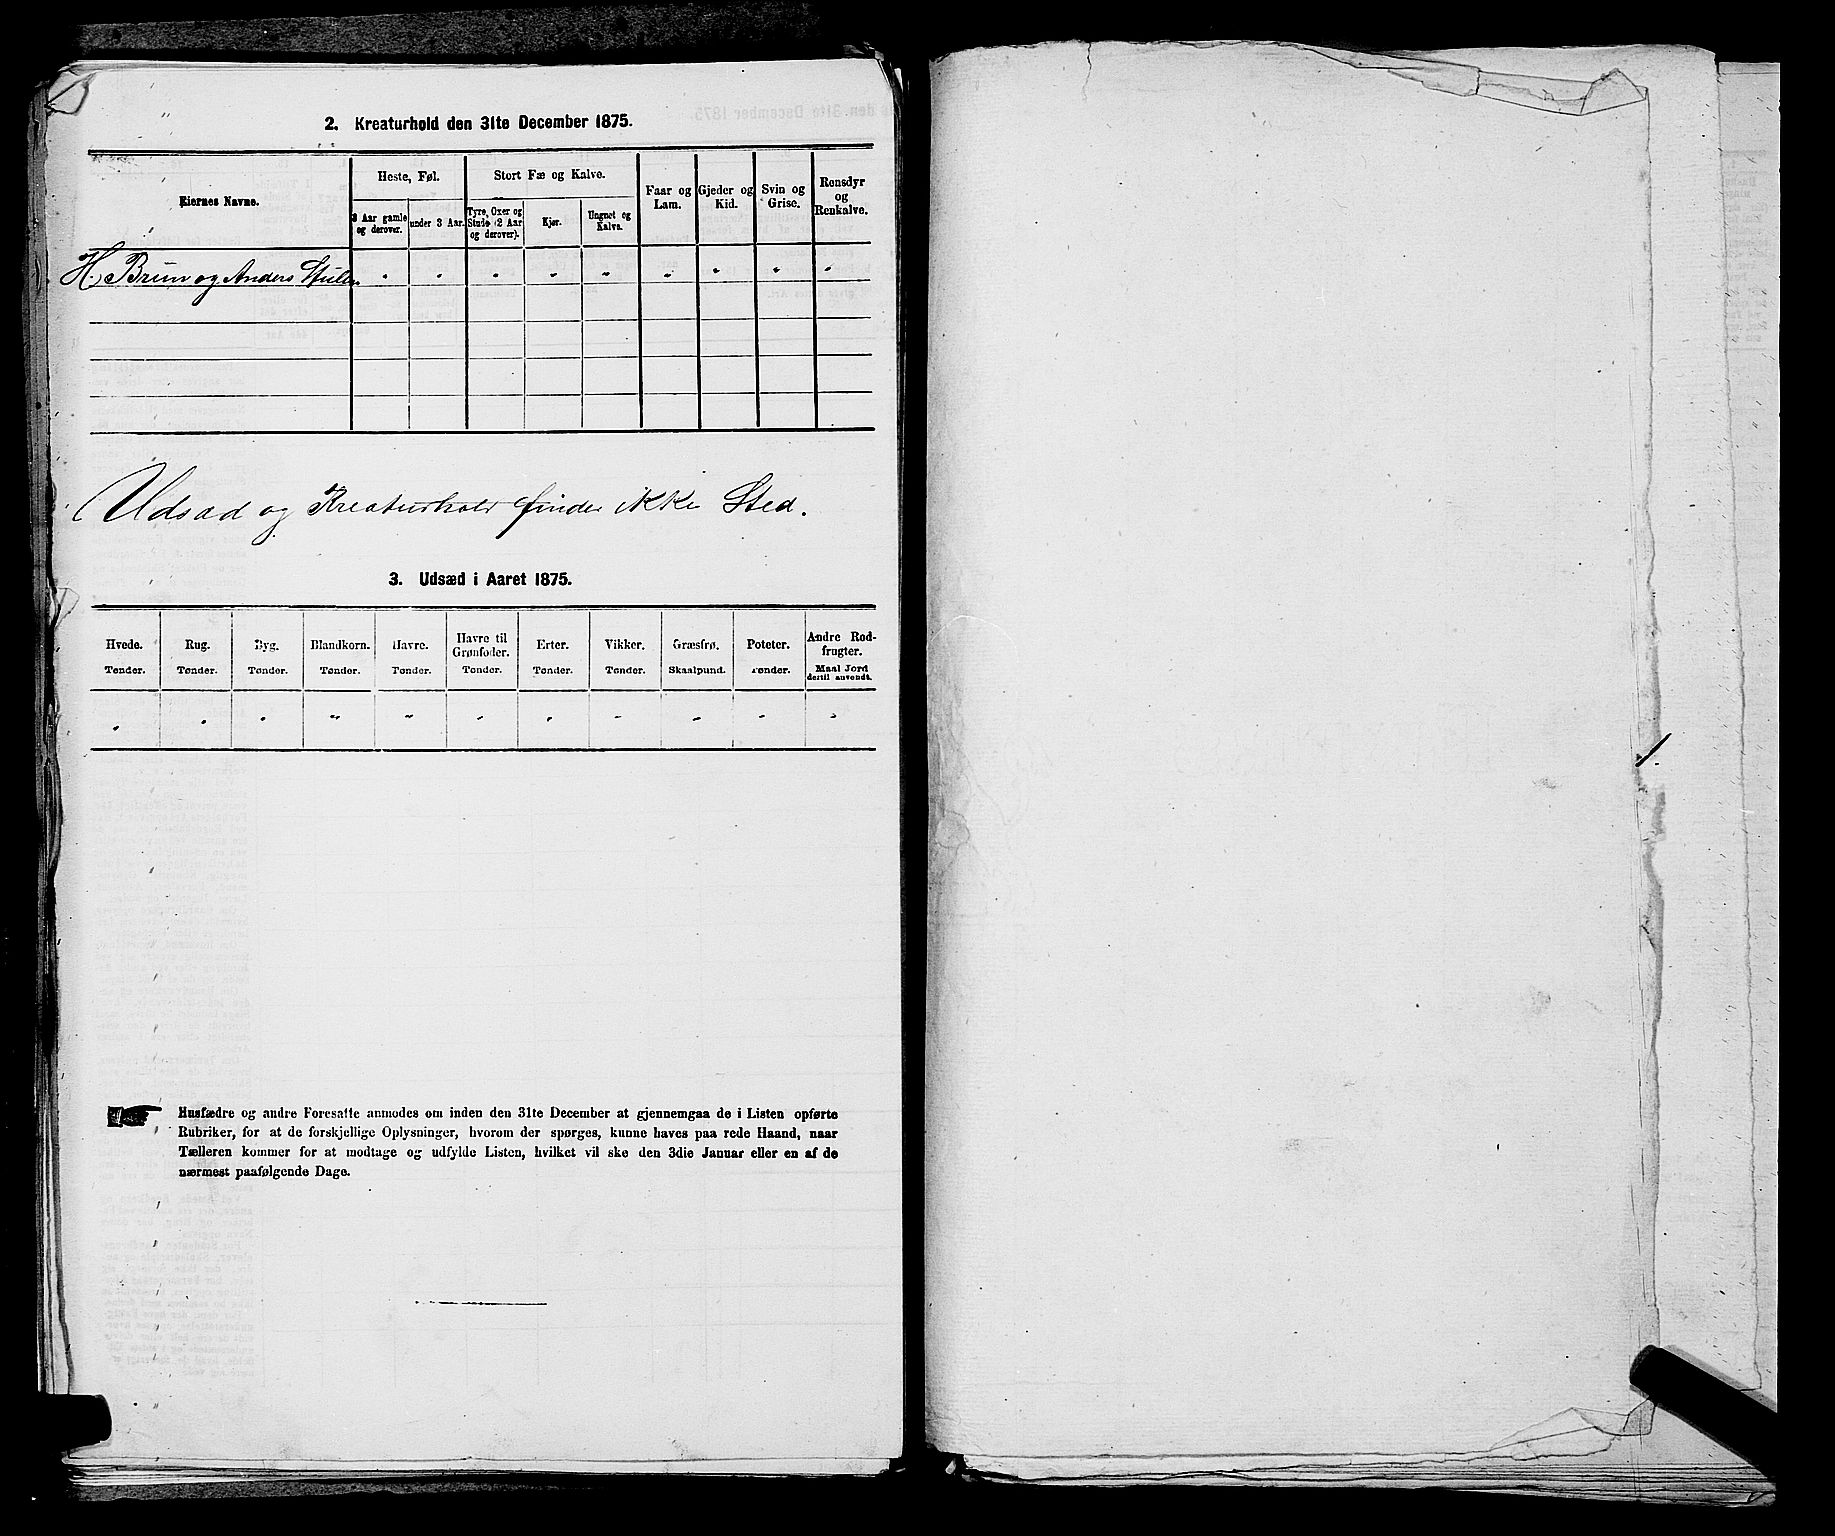 2. Kreaturhold den 31te December 1875.
Eiernes Navne.
Heste, Føl.
Stort Fæ og Kalve.
Faar og
Lam.
Gjeder og
Kid.
Svin og
Grise.
Rensdyr
og
Renkalve.
3 Aar gamle
og derover.
under 3 Aar.
Tyre, Oxer og
Stude (2 Aar
og derover).
Kjør.
Ungnet og
Kalve.
H. Brun og Anders
" " " " " " " " "
Udsæd og Kreaturhold finder ikke Sted.
3. Udsæd i Aaret 1875.
Hvede.
Tønder.
Rug.
Tønder.
Byg.
Tønder.
Blandkorn.
Tønder.
Havre.
Tønder.
Havre til
Grønfoder.
Tønder.
Erter.
Tønder.
Vikker.
Tønder.
Græsfrø.
Skaalpund.
Poteter.
Tønder.
Andre Rod-
frugter.
Maal Jord
dertil anvendt.
" " " " " " " " " " "
Husfædre og andre Foresatte anmodes om inden den 31te December at gjennemgaa de i Listen opførte
Rubriker, for at de forskjellige Oplysninger, hvorom der spørges, kunne haves paa rede Haand, naar
Tælleren kommer for at modtage og udfylde Listen, hvilket vil ske den 3die Januar eller en af de
nærmest paafølgende Dage.